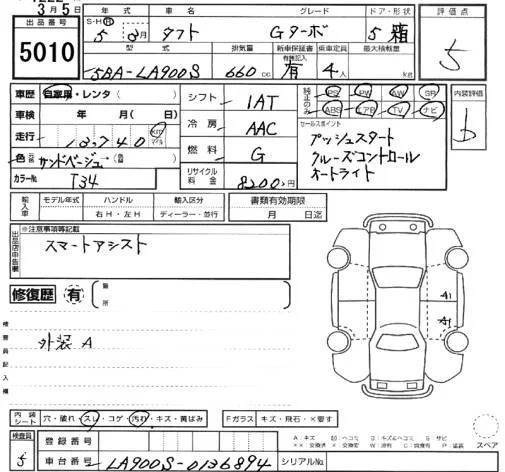 3月5日
出品番号 5010
年式 車名 グレード ドア・形状 評価点
S・H・R 5年3月 タフト Gターボ 5 箱 5
型式 排気量 新車保証書 乗車定員 最大積載量
有無記入
5BA-LA900S 660cc 有 4人 kg
車歴 自家用・レンタ( )
車検 年 月( 日)
走行 13,740 km マイル
色 サンドベージュ→( )
カラーNo. T34
シフト 1AT
冷房 AAC
燃料 G
リサイクル料金 8200円
純正のみ PS PW AW SR
ABS エアB TV ナビ
内装評価 b
セールスポイント
プッシュスタート
クルーズコントロール
オートライト
輸入車 モデル年式 ハンドル 輸入区分
右H・左H ディーラー・並行
書類有効期限
月 日迄
出品店申告欄
※注意事項等記載
スマートアシスト
修復歴 有 (箇所 )
検査員記入欄
外装 A
A1
A1
内装シート 穴・破れ・スレ・コゲ・汚れ・キズ・黄ばみ
Fガラス キズ・飛石・×要す
検査員 5
登録番号
車台番号 LA900S-0136894
シリアルNo.
スペア